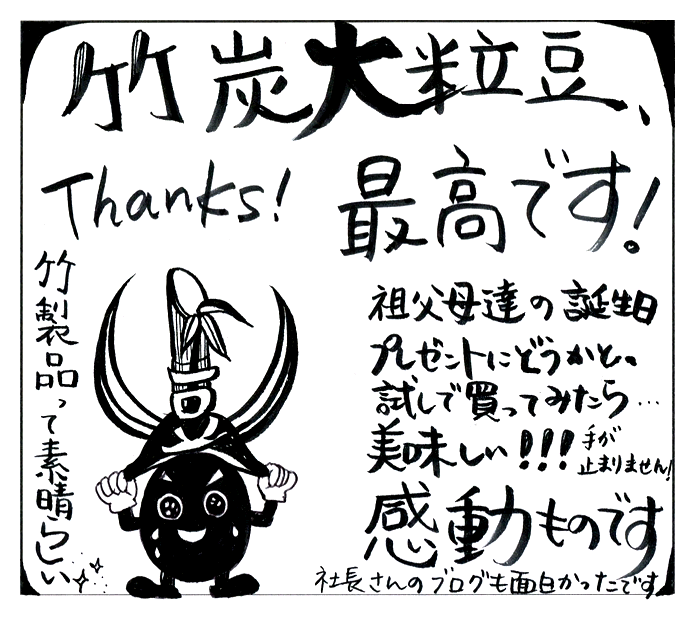 竹炭大粒豆、
Thanks! 最高です!
竹製品って素晴らしい
祖父母達の誕生日
プレゼントにどうかと、
試しで買ってみたら…
美味しい!!!手が
止まりません!
感動ものです
社長さんのブログも面白かったです